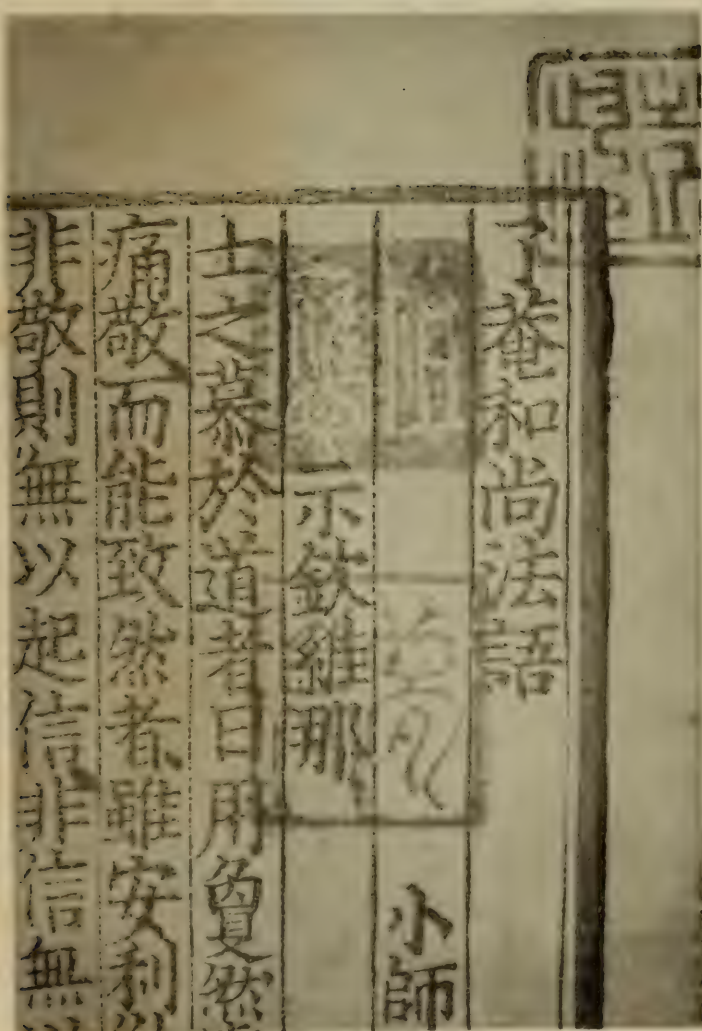 了菴和尚法語
小師
示欽維那
士之慕於道者日用敻然
痛敬而能致然者雖安利
非敬則無以起信非信無以